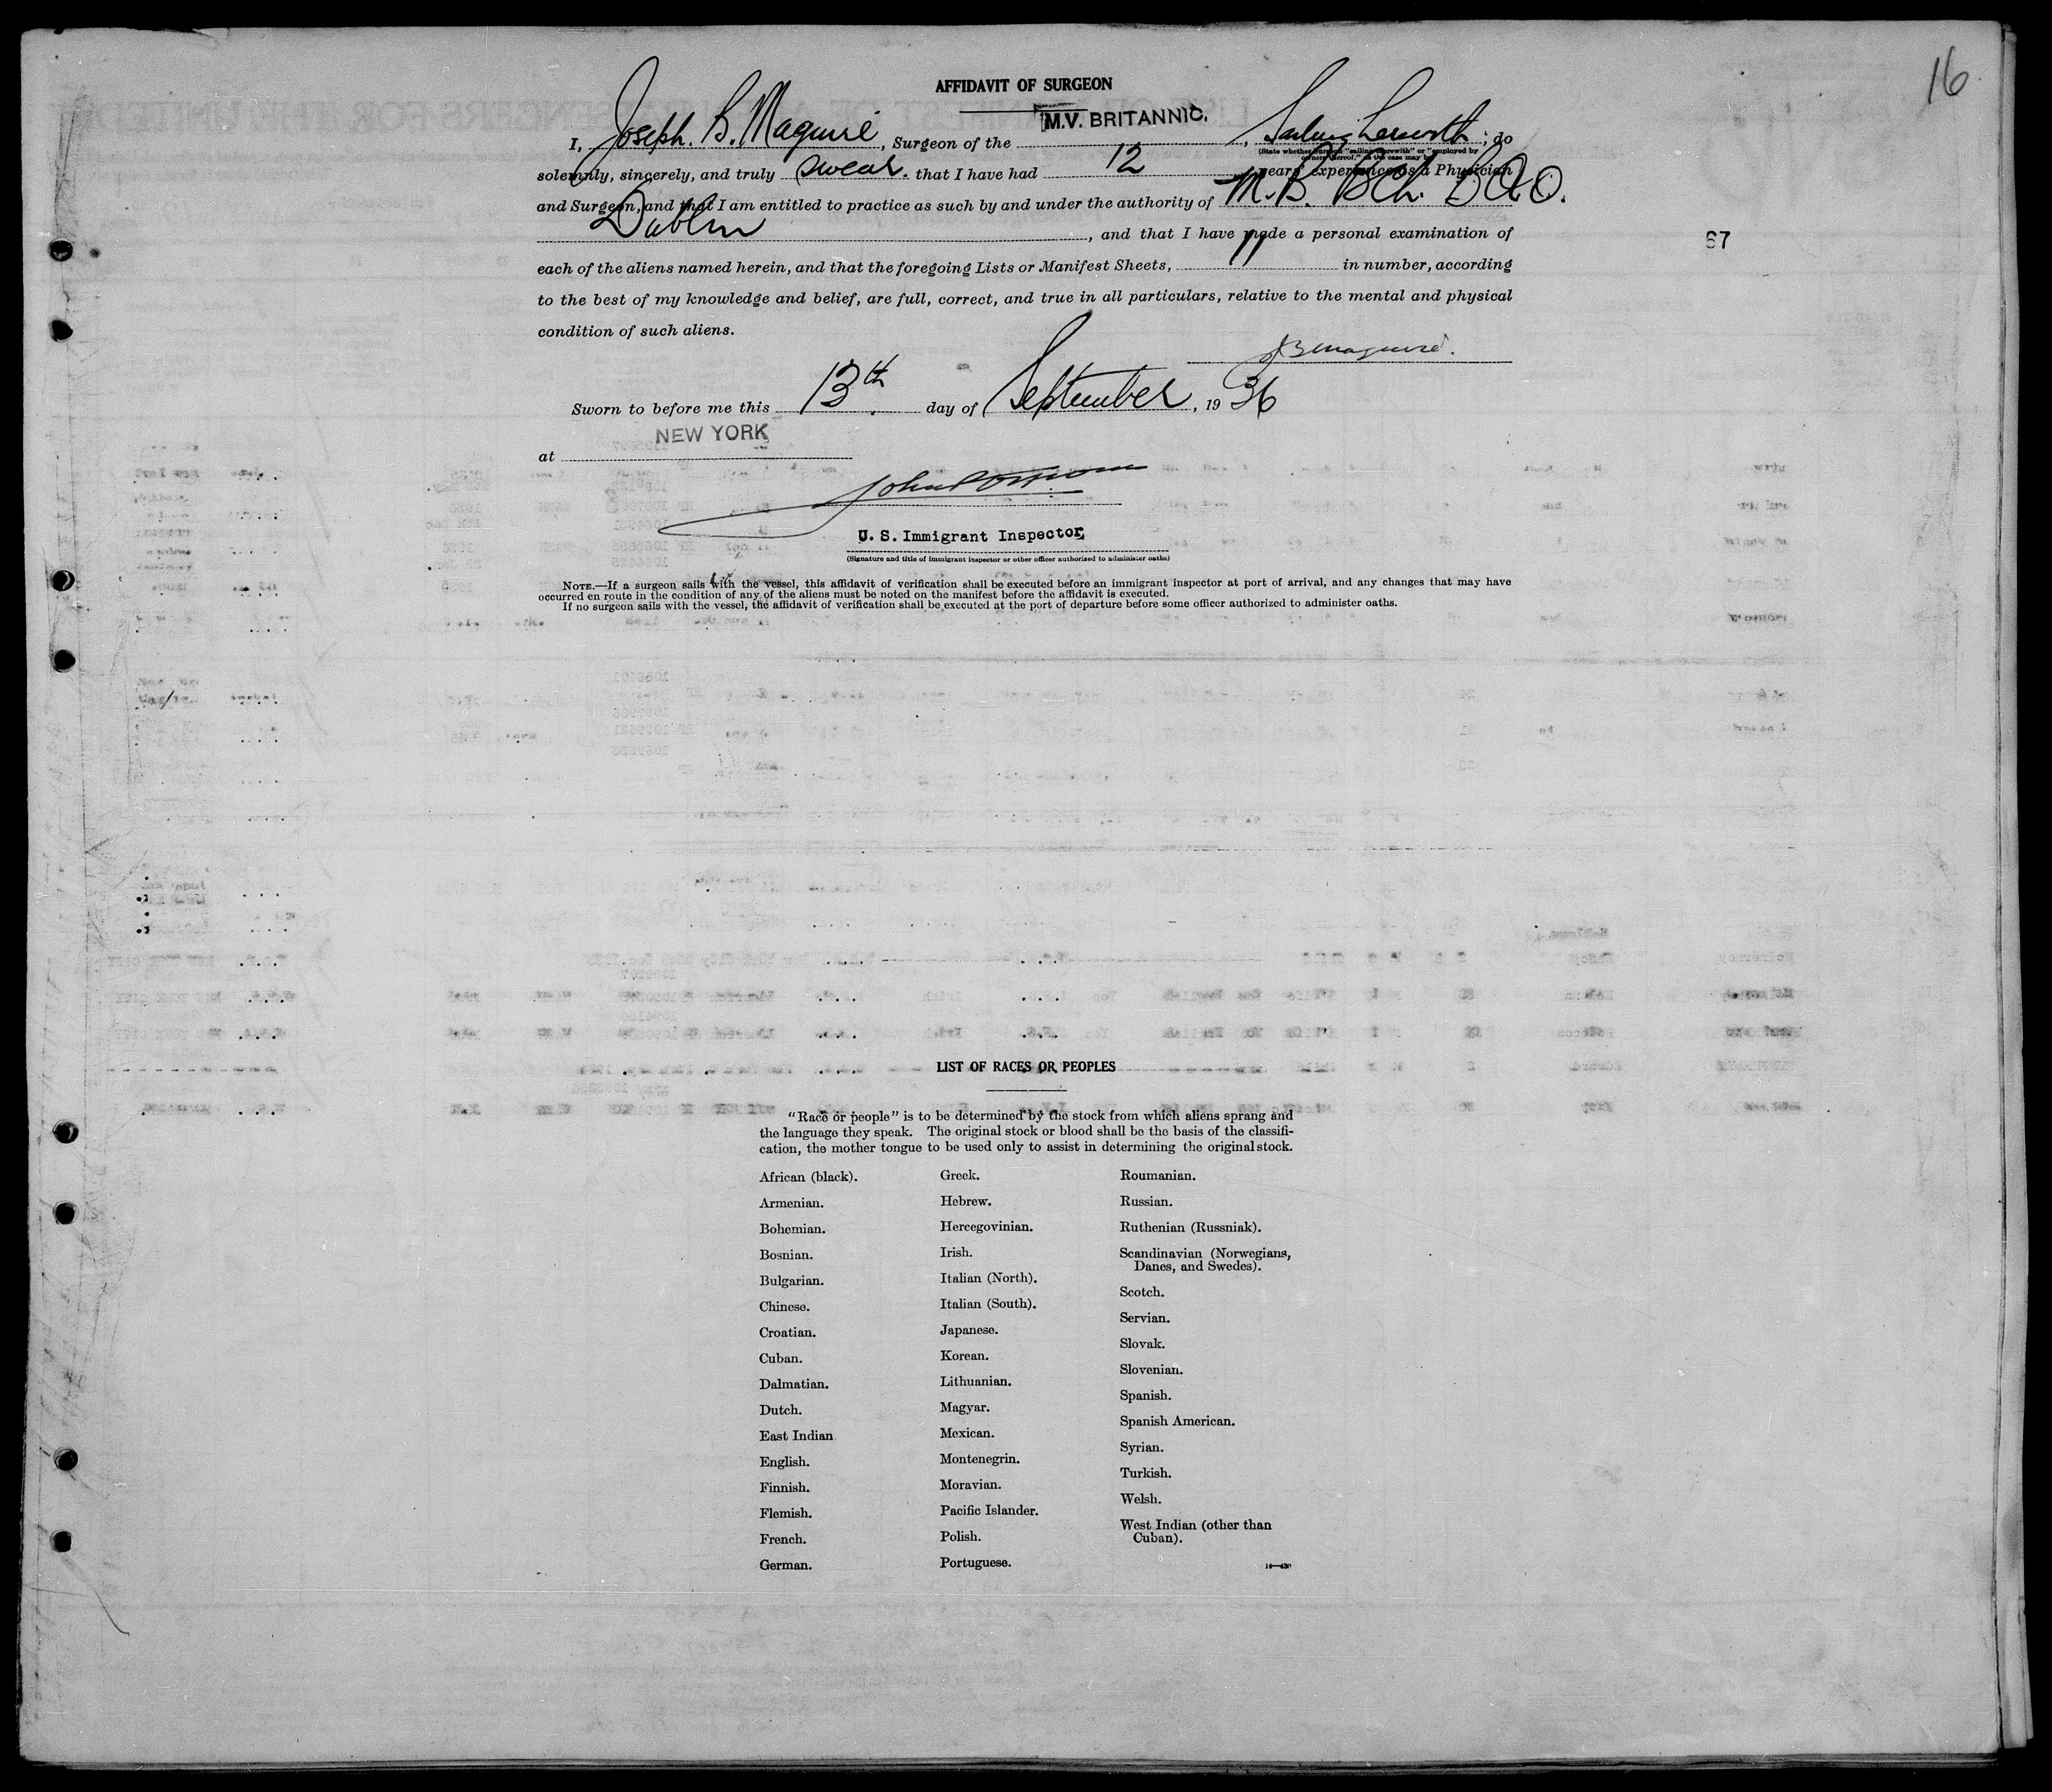 16
AFFIDAVIT OF SURGEON
M.V. BRITANNIC.
I, Joseph. B. Maguire, Surgeon of the , Sailing herewith ; do
(State whether Surgeon "sailing herewith" or "employed by
owners thereof," as the case may be)
solemnly, sincerely, and truly swear. that I have had 12 years experience as a Physician
and Surgeon, and that I am entitled to practice as such by and under the authority of M.B. BCh. BAO.
Dublin , and that I have made a personal examination of
67
each of the aliens named herein, and that the foregoing Lists or Manifest Sheets, 11 in number, according
to the best of my knowledge and belief, are full, correct, and true in all particulars, relative to the mental and physical
condition of such aliens.
JB Maguire.
Sworn to before me this 13th day of September, 1936
at NEW YORK
John
U. S. Immigrant Inspector
(Signature and title of immigrant inspector or other officer authorized to administer oaths)
NOTE.—If a surgeon sails with the vessel, this affidavit of verification shall be executed before an immigrant inspector at port of arrival, and any changes that may have
occurred en route in the condition of any of the aliens must be noted on the manifest before the affidavit is executed.
If no surgeon sails with the vessel, the affidavit of verification shall be executed at the port of departure before some officer authorized to administer oaths.
LIST OF RACES OR PEOPLES
"Race or people" is to be determined by the stock from which aliens sprang and
the language they speak. The original stock or blood shall be the basis of the classifi-
cation, the mother tongue to be used only to assist in determining the original stock.
African (black).
Armenian.
Bohemian.
Bosnian.
Bulgarian.
Chinese.
Croatian.
Cuban.
Dalmatian.
Dutch.
East Indian
English.
Finnish.
Flemish.
French.
German.
Greek.
Hebrew.
Hercegovinian.
Irish.
Italian (North).
Italian (South).
Japanese.
Korean.
Lithuanian.
Magyar.
Mexican.
Montenegrin.
Moravian.
Pacific Islander.
Polish.
Portuguese.
Roumanian.
Russian.
Ruthenian (Russniak).
Scandinavian (Norwegians,
Danes, and Swedes).
Scotch.
Servian.
Slovak.
Slovenian.
Spanish.
Spanish American.
Syrian.
Turkish.
Welsh.
West Indian (other than
Cuban).